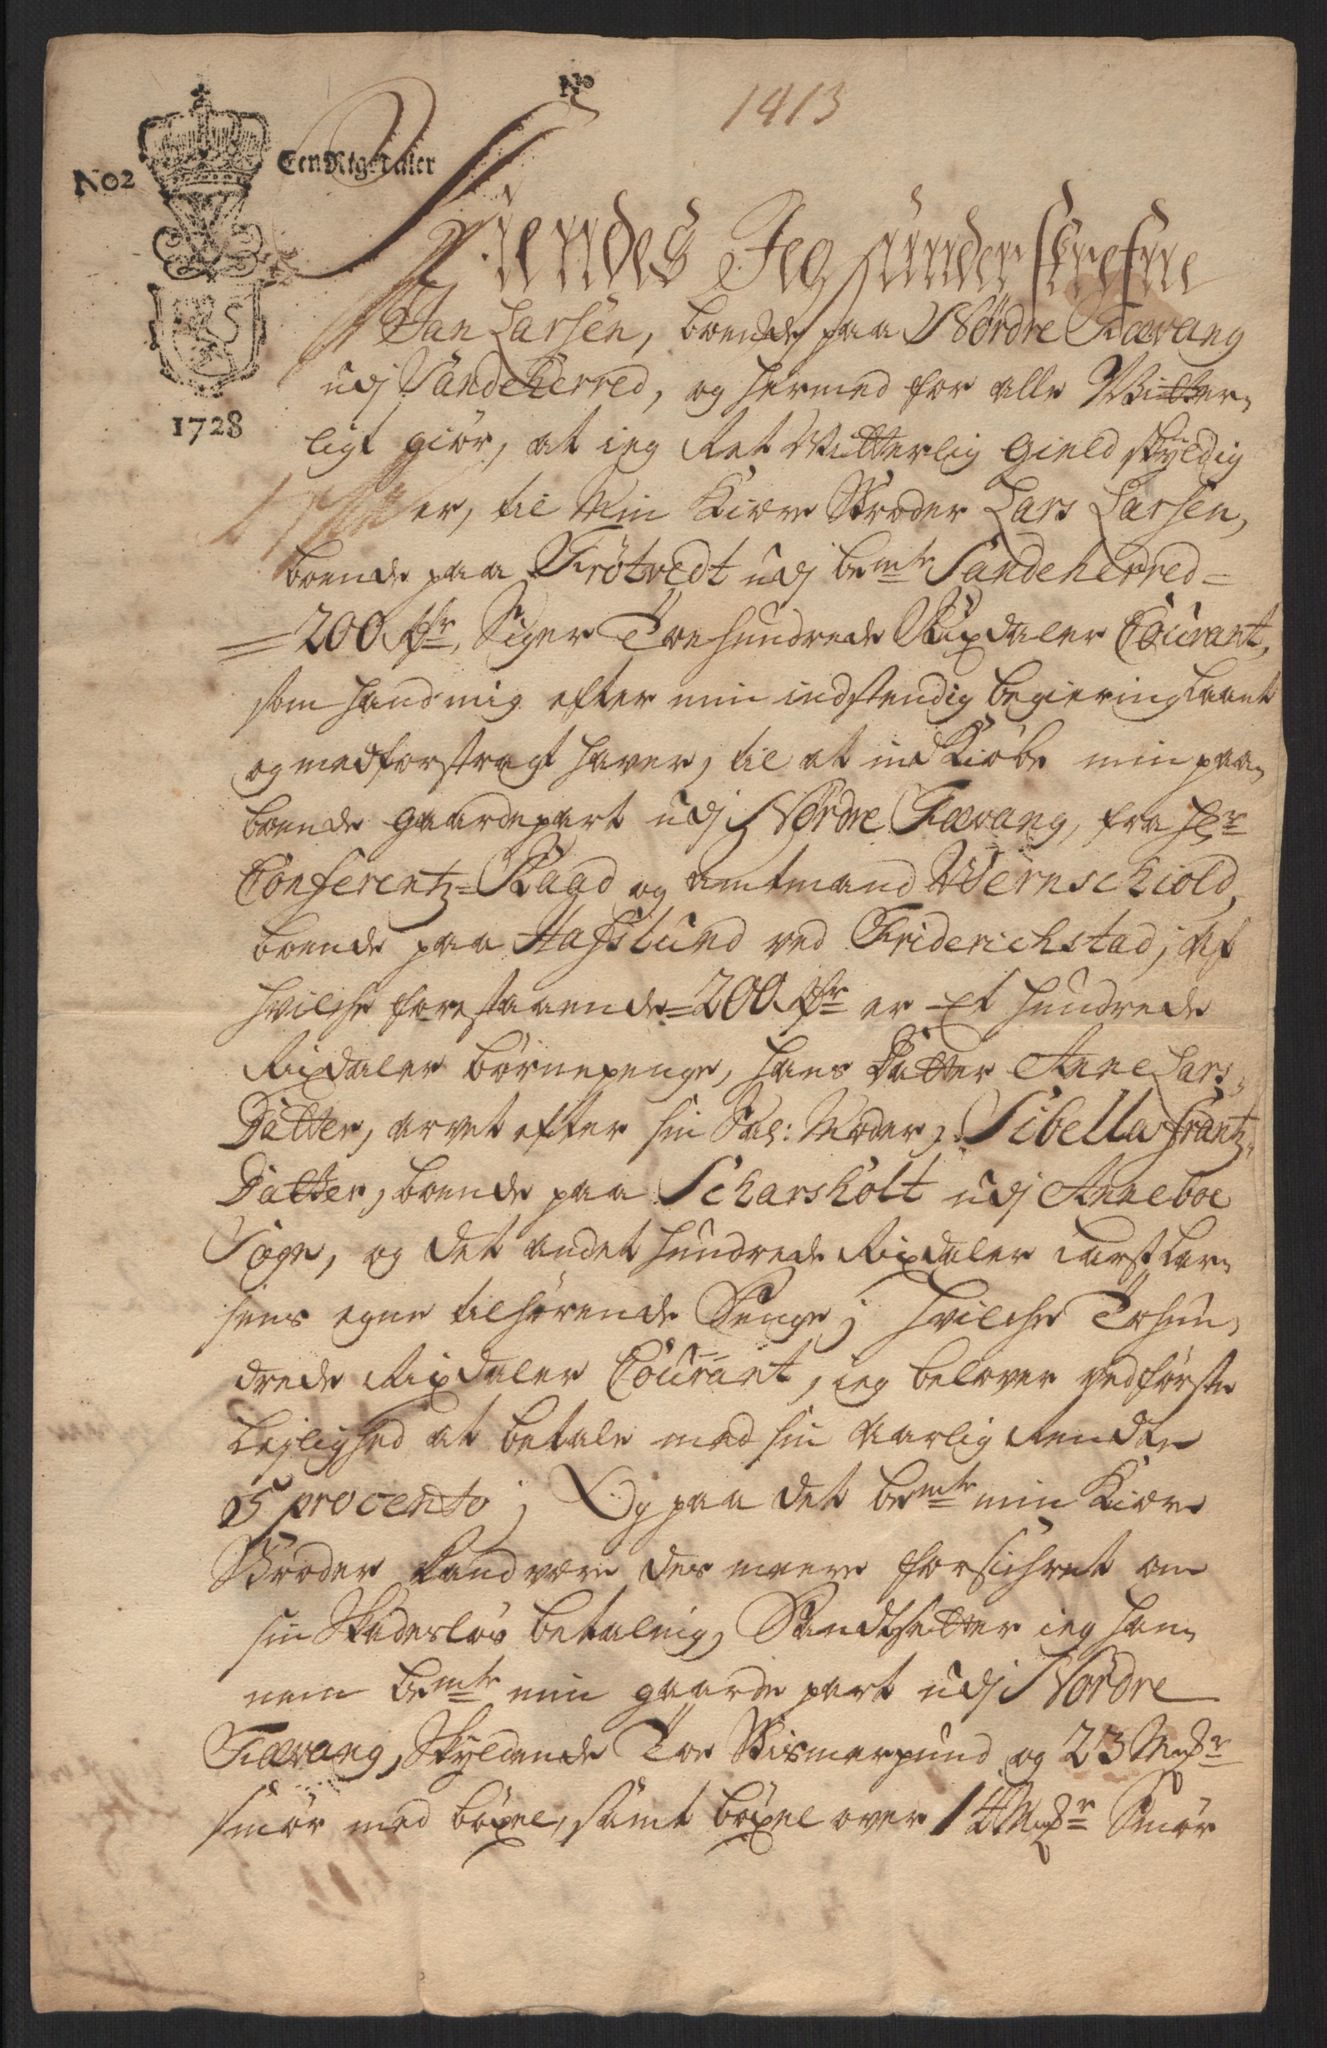 No
1413
No 2
Een Rigsdaler
Kiendes Jeg underskrefne
Jan Larsen, boende paa Nørdre Fævang
udj Sandeherred, og hermed for alle Witter-
ligt giør, at ieg Ret Witterlig Gield skyldig
1728
er, til Min Kiere Broder Lars Larsen,
boende paa Frøtvedt udj bemte Sandeherred=
=200 Rdr, Siger Toe hundrede Rixdaler Courant,
som hand mig efter min indstendig begiering laant
og medforstragt haver, til at indKiøbe min paa-
boende gaardepart udj Nørdre Fævang, fra Hr
Conferentz=Raad og Amtmand Wernschiold,
boende paa Hafslund ved Friderichstad; Af
hvilche forestaaende =200 Rdr er Et hundrede
Rixdaler børnepenge, hans Datter Anne Lars-
Datter, arvet efter sin Sal: Moder, Sibella frantz-
Datter, boende paa Scharsholt udj Anneboe
Sogn, og det andet hundrede Rixdaler Larss Lar-
sens egne tilhørende Penge; hvilche Tohun-
drede Rixdaler Courant, ieg belover ved første
Lejlighed at betale med sin Aarlig Rendte
5 procento; Og paa det bemte min Kiere
Broder kand være des meere forsichret om
sin Skadesløs betaling, Pandtsetter ieg ham
nem bemte min gaarde part udj Nordre
Fævang, Skyldende Toe Bismerpund og 23 Mrkr
smør med bøxel, samt bøxel over 14 Mrkr Smør